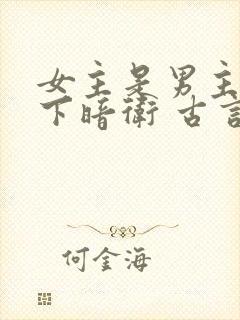 女主是男主
下暗衛 古言
何金海